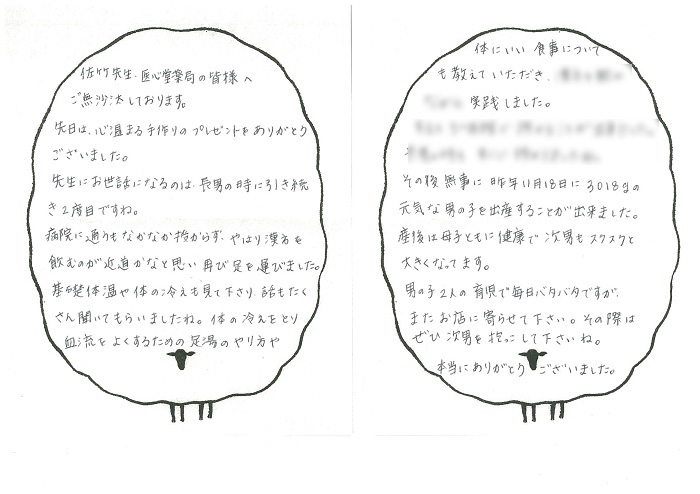 佐竹先生、匠心堂薬局の皆様へ
ご無沙汰しております。
先日は、心温まる手作りのプレゼントをありがとう
ございました。
先生にお世話になるのは、長男の時に引き続
き2度目ですね。
病院に通うもなかなか授からず、やはり漢方を
飲むのが近道かなと思い再び足を運びました。
基礎体温や体の冷えも見て下さり、話もたく
さん聞いてもらいましたね。体の冷えをとり
血流をよくするための足湯のやり方や
体にいい食事について
も教えていただき、
実践しました。
その後無事に昨年11月18日に3018gの
元気な男の子を出産することが出来ました。
産後は母子ともに健康で次男もスクスクと
大きくなってます。
男の子2人の育児で毎日バタバタですが、
またお店に寄らせて下さい。その際は
ぜひ次男を抱っこして下さいね。
本当にありがとうございました。